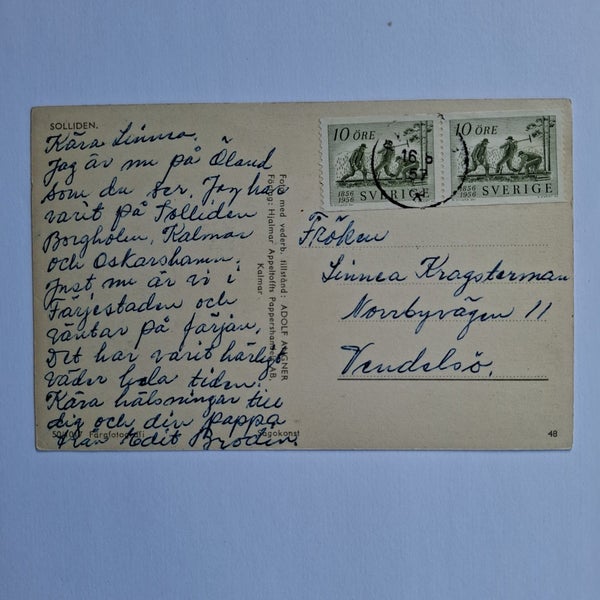 SOLLIDEN.
Kära Linnea.
Jag är nu på Öland
som du ser. Jag har
varit på Solliden
Borgholm, Kalmar
och Oskarshamn.
Just nu är vi i
Färjestaden och
väntar på färjan.
Det har varit härligt
väder hela tiden.
Kära hälsningar till
dig och din pappa
från Edit Brodin.
Färgfotografi
Foto med vederb. tillstånd: ADOLF
Förlag: Hjalmar Appeltoffts Pappershandel AB,
Kalmar
Sagokonst
48
10 ÖRE
1856
1956
SVERIGE
10 ÖRE
1856
1956
SVERIGE
16
57
Fröken
Linnea Kragsterman
Norrbyvägen 11
Vendelsö.